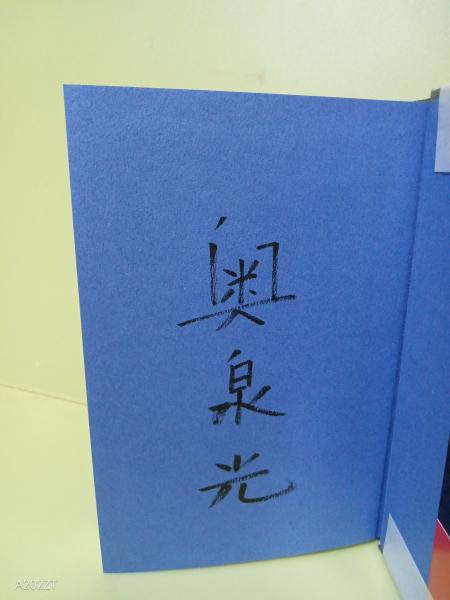 奥泉光
A202ZT